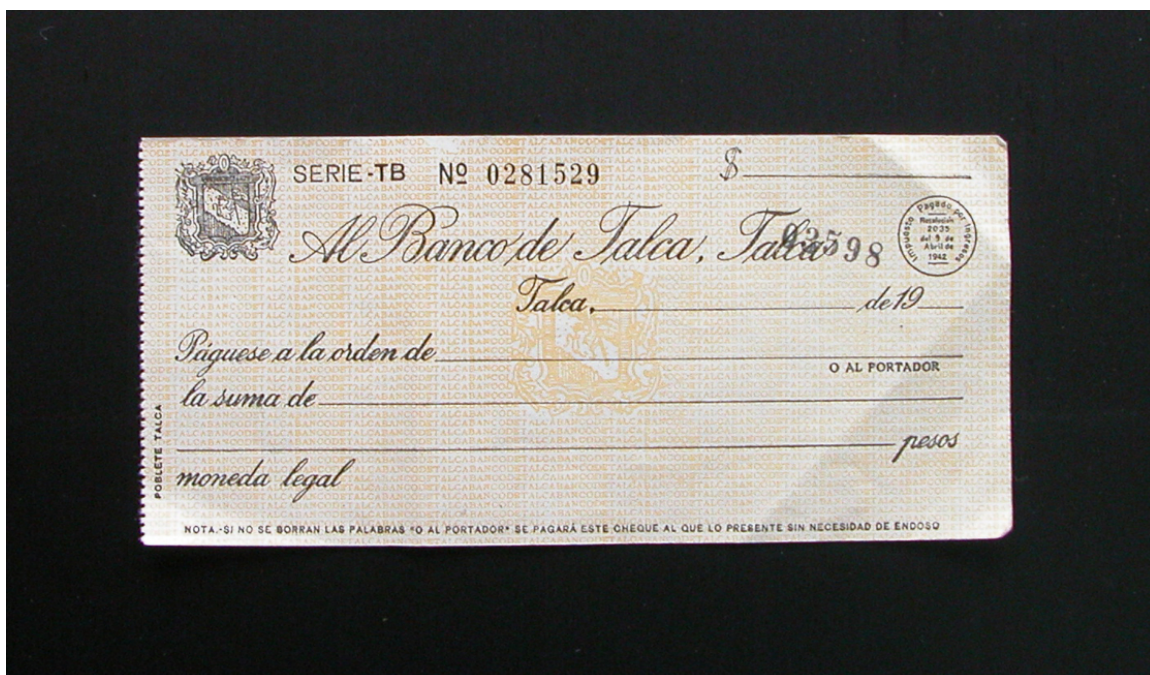 SERIE-TB Nº 0281529 $
Al Banco de Talca, Talca
02598
Impuesto Pagado por Ingresos
Resolución
2035
del 9 de
Abril de
1942
Talca, de 19
Páguese a la orden de
O AL PORTADOR
la suma de
pesos
moneda legal
POBLETE TALCA
NOTA.-SI NO SE BORRAN LAS PALABRAS "O AL PORTADOR" SE PAGARÁ ESTE CHEQUE AL QUE LO PRESENTE SIN NECESIDAD DE ENDOSO